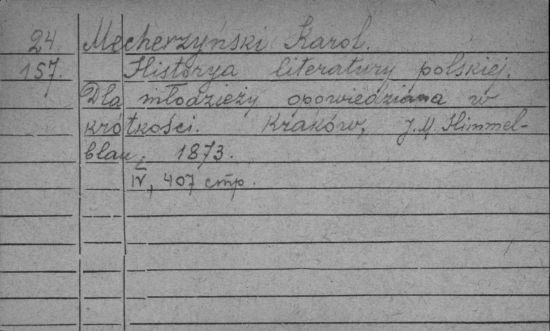 24. Mecherzyński Karol.
157. Historya literatury polskiej.
Dla młodzieży opowiedziana w
krótkości. Kraków, J. M. Himmel-
blau, 1873.
IV, 407 stnp.